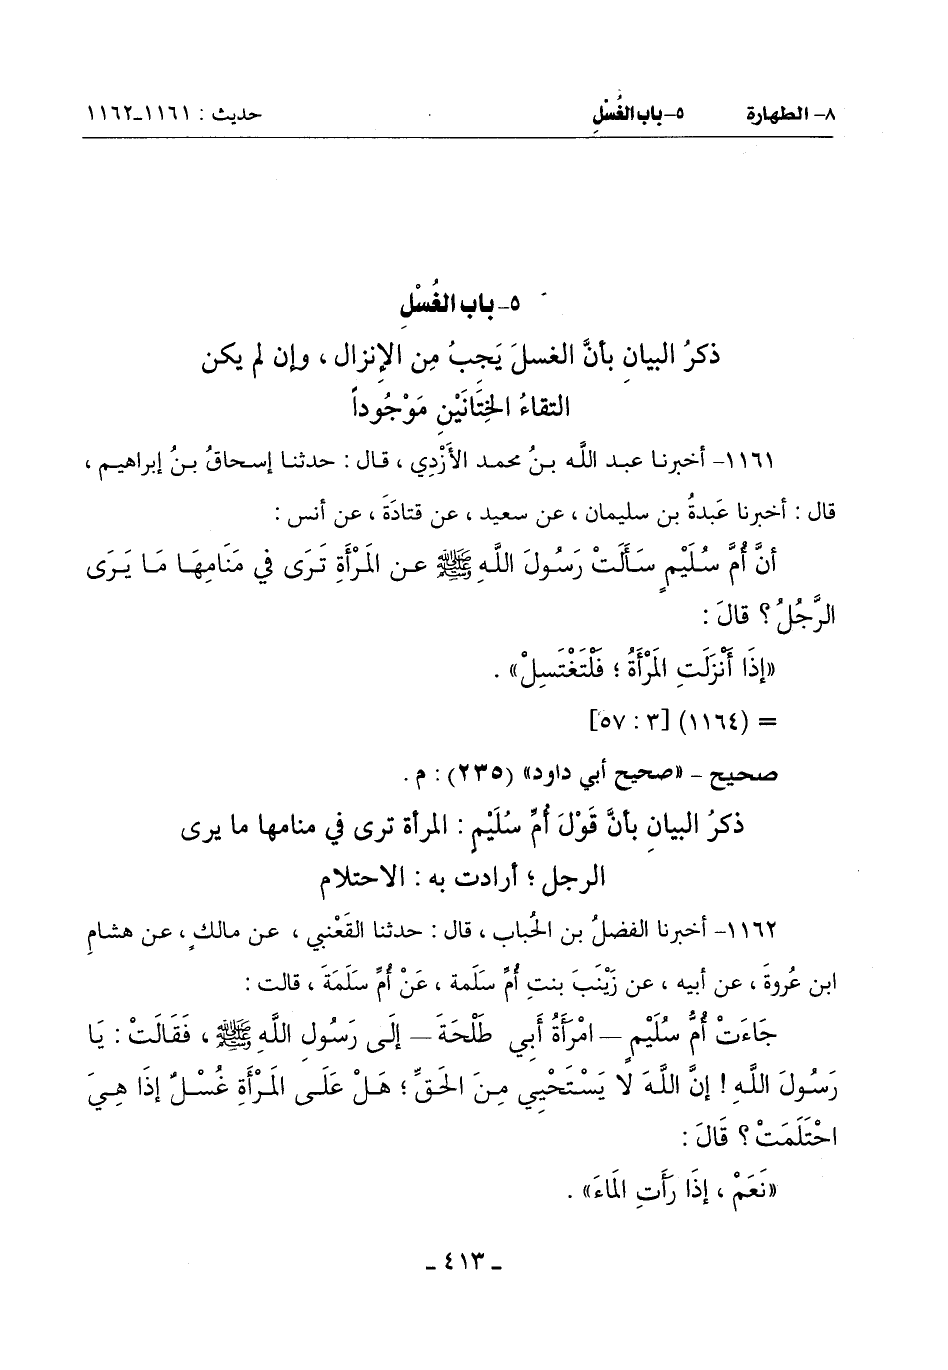 ٨- الطهارة ٥- باب الغُسْلِ حديث : ١١٦١-١١٦٢
٥- باب الغُسْلِ
ذكرُ البيانِ بأنَّ الغسلَ يَجِبُ مِن الإنزالِ ، وإن لم يكن
التقاءُ الخِتَانَيْنِ مَوْجُوداً
١١٦١- أخبرنا عبد اللَّه بنُ محمد الأَزْدِي ، قال : حدثنا إسحاقُ بنُ إبراهيم ،
قال : أخبرنا عَبدةُ بن سليمان ، عن سعيد ، عن قتادَةَ ، عن أنس :
أنَّ أُمَّ سُلَيْمٍ سَأَلَتْ رَسُولَ اللَّهِ ﷺ عـن المَرْأَةِ تَرَى فِي مَنَامِهَا مَا يَرَى
الرَّجُلُ ؟ قالَ :
«إذَا أَنْزَلَتِ المَرْأَةُ ؛ فَلْتَغْتَسِلْ» .
= (١١٦٤) [٣ : ٥٧]
صحيح - «صحيح أبي داود» (٢٣٥) : م .
ذكرُ البيانِ بأنَّ قَوْلَ أُمِّ سُلَيْمٍ : المرأة ترى في منامها ما يرى
الرجل ؛ أرادت به : الاحتلام
١١٦٢- أخبرنا الفضلُ بن الحُباب ، قال : حدثنا القَعْنبي ، عن مالكٍ ، عن هشامِ
ابن عُروةَ ، عن أبيه ، عن زَيْنَبَ بنتِ أُمِّ سَلَمة ، عَنْ أُمِّ سَلَمَةَ ، قالت :
جَاءَتْ أُمُّ سُلَيْمٍ – امْرَأَةُ أَبِي طَلْحَةَ – إلَى رَسُولِ اللَّهِ ﷺ ، فَقَالَتْ : يَا
رَسُولَ اللَّهِ ! إنَّ اللَّهَ لا يَسْتَحْيِي مِنَ الحَقِّ ؛ هَلْ عَلَى المَرْأَةِ غُسْلٌ إذَا هِيَ
احْتَلَمَتْ ؟ قَالَ :
«نَعَمْ ، إذَا رَأَتِ المَاءَ» .
- ٤١٣ -